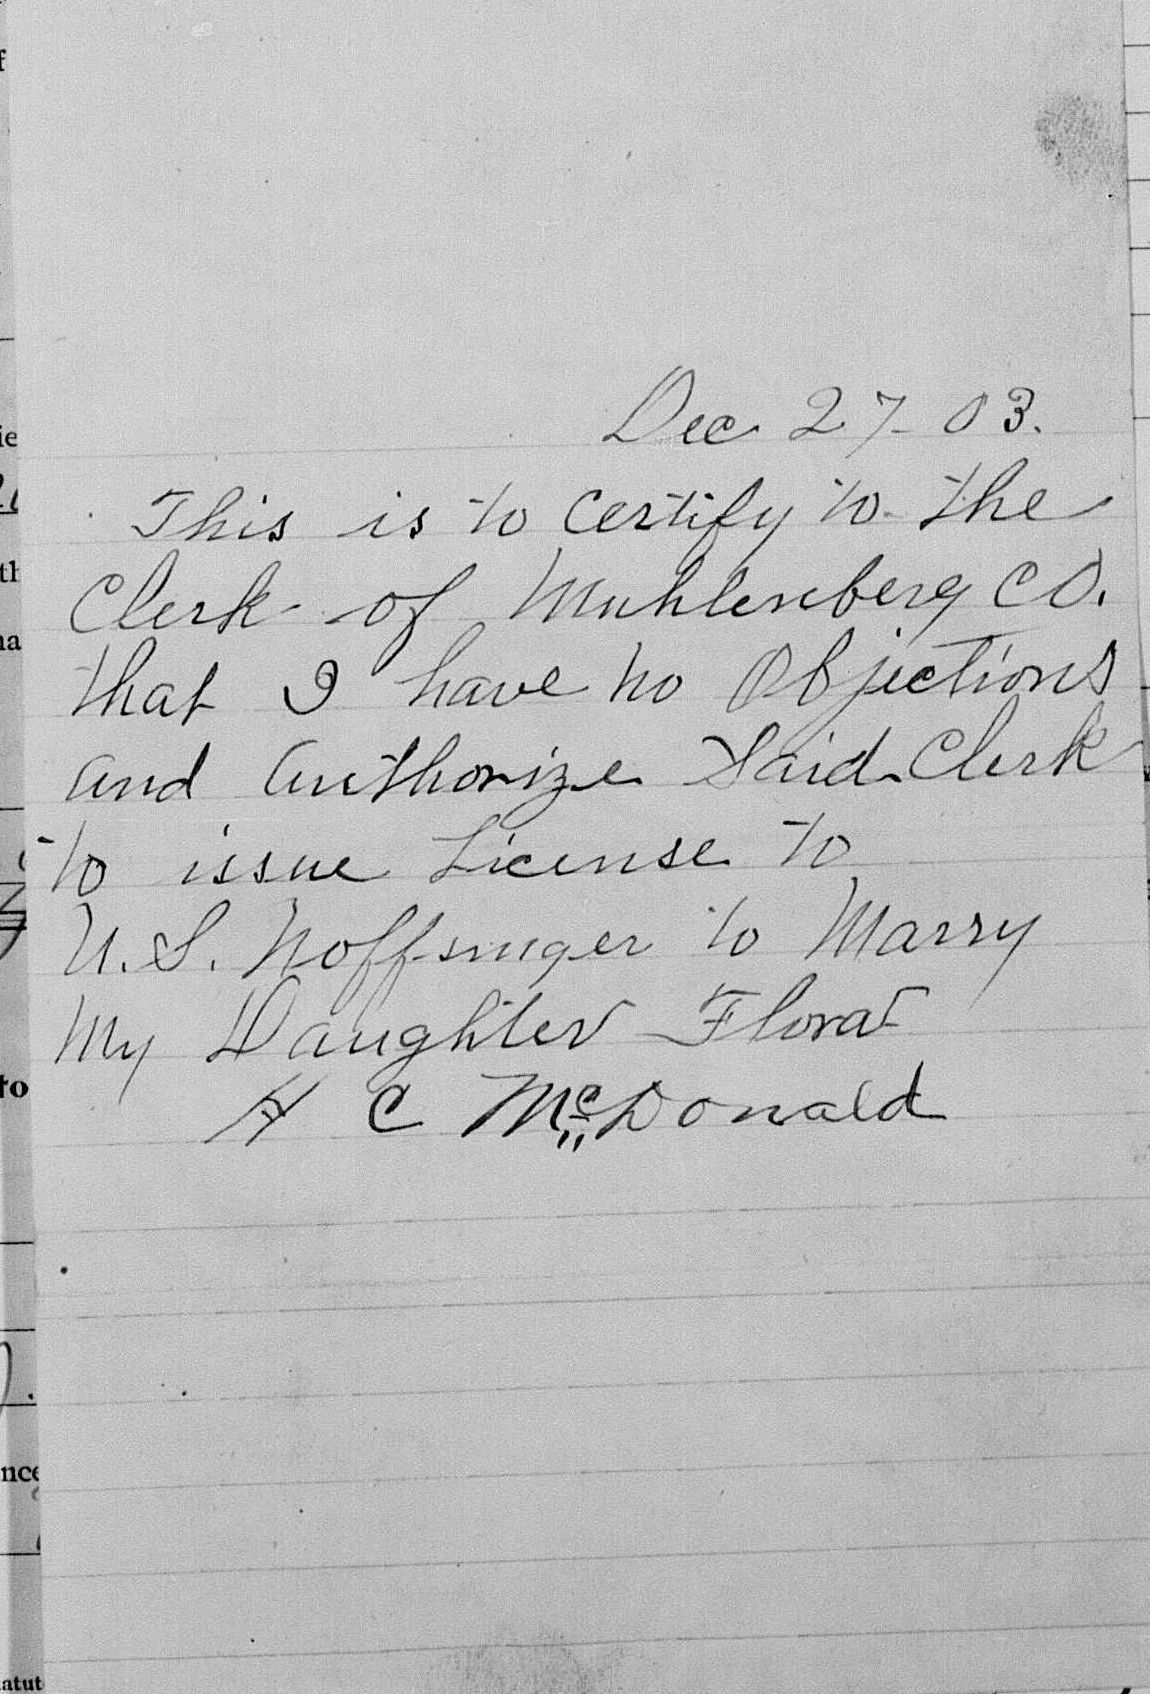 Dec 27-03.
This is to certify to the
Clerk of Muhlenberg CO.
that I have no Objections
and Authorize Said Clerk
to issue License to
U.S. Noffsinger to Marry
My Daughter Flora
H C McDonald